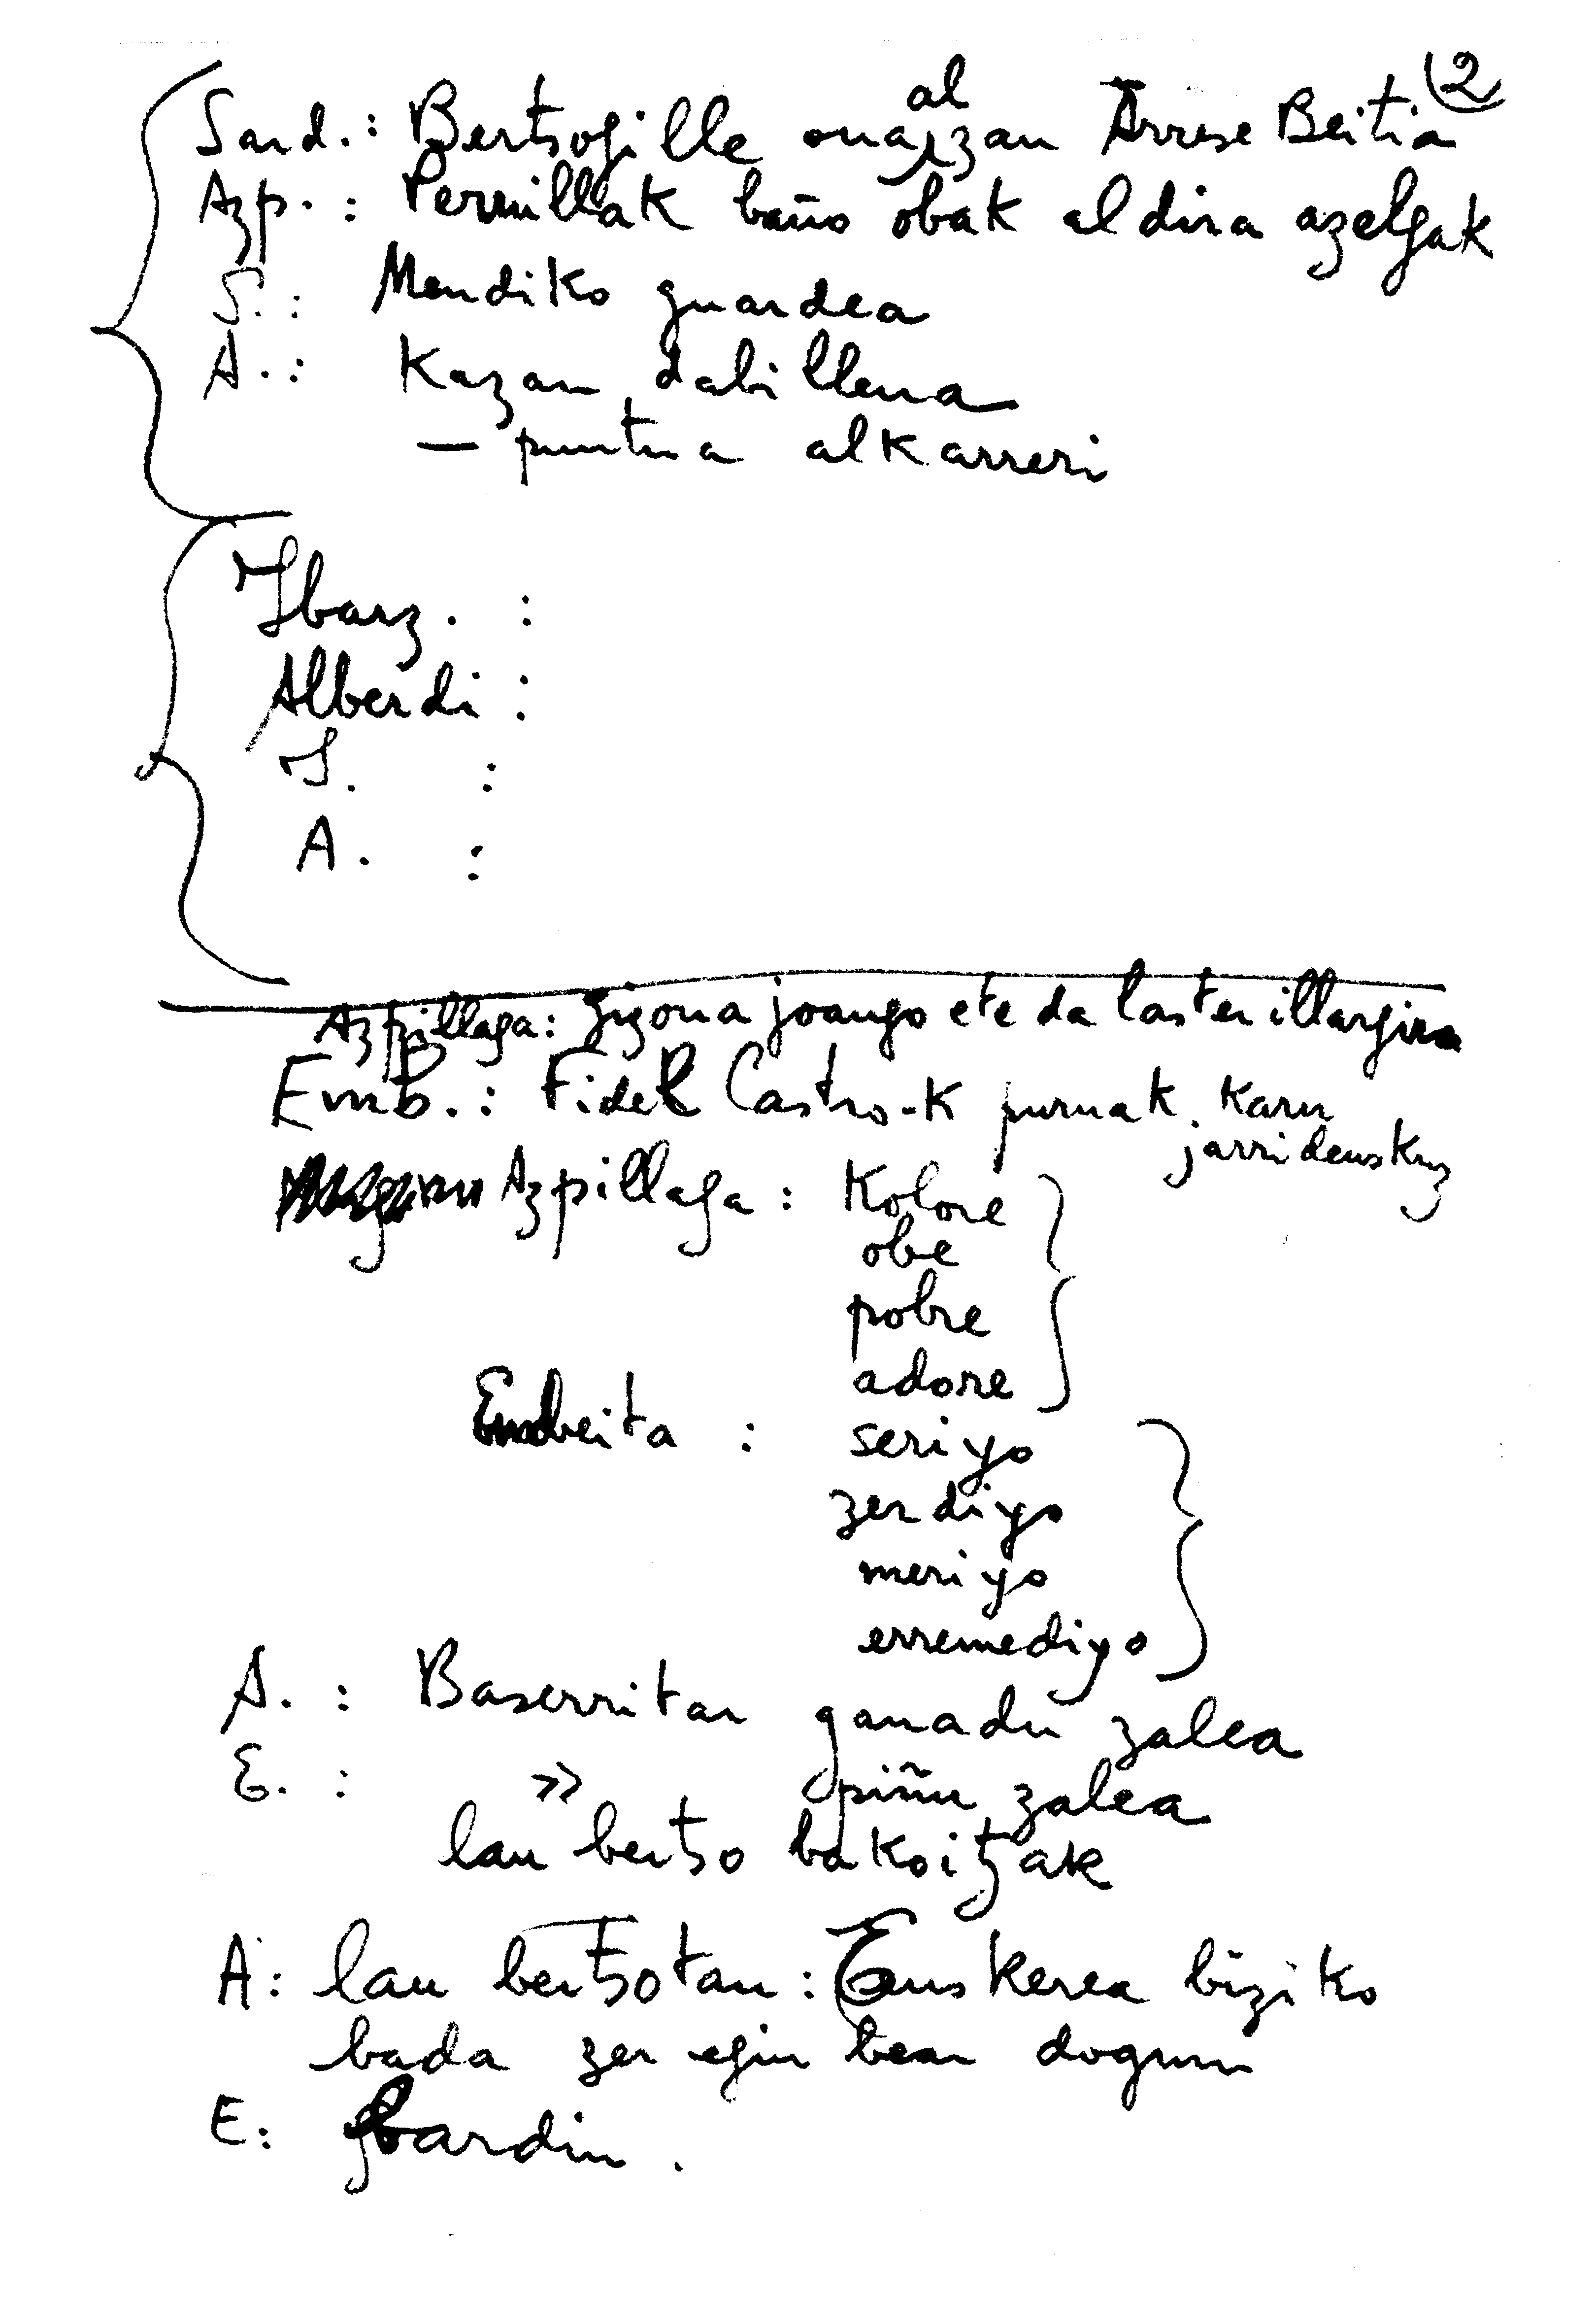 2
Sard.: Bertsogille ona al zan Arrese Beitia
Azp.: Pernillak baño obak al dira azelgak
S.: Mendiko guardea
A.: Kazan dabillena
— puntua alkarreri
Ibarz. :
Alberdi :
I. :
A. :
Azpillaga: Gizona joango ete da laster illargira
Enb.: Fidel Castro-k puruak karu
jarri deuskuz
Azpillaga : Kolore
obe
pobre
adore
Enbeita : seriyo
zer diyo
meriyo
erremediyo
A. : Baserritar ganadu zalea
E. : » piñu zalea
lau bertso bakoitzak
A: lau bertsotan : Euskerea biziko
bada zer egin bear dogun
E: bardin.